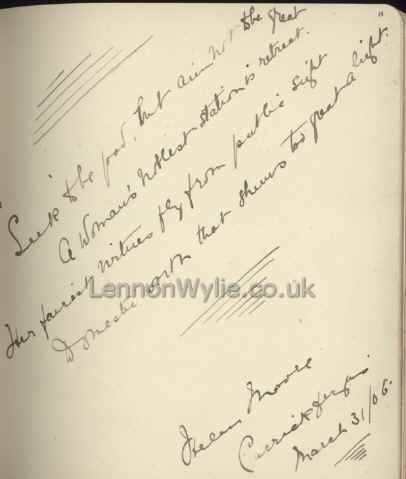 "Seek to be good, but aim not to be great
A Woman's noblest station is retreat.
Her fairest virtues fly from public sight
Domestic worth that shuns too great a light."
LennonWylie.co.uk
Helen Moore
Carrickfergus.
March 31/06.